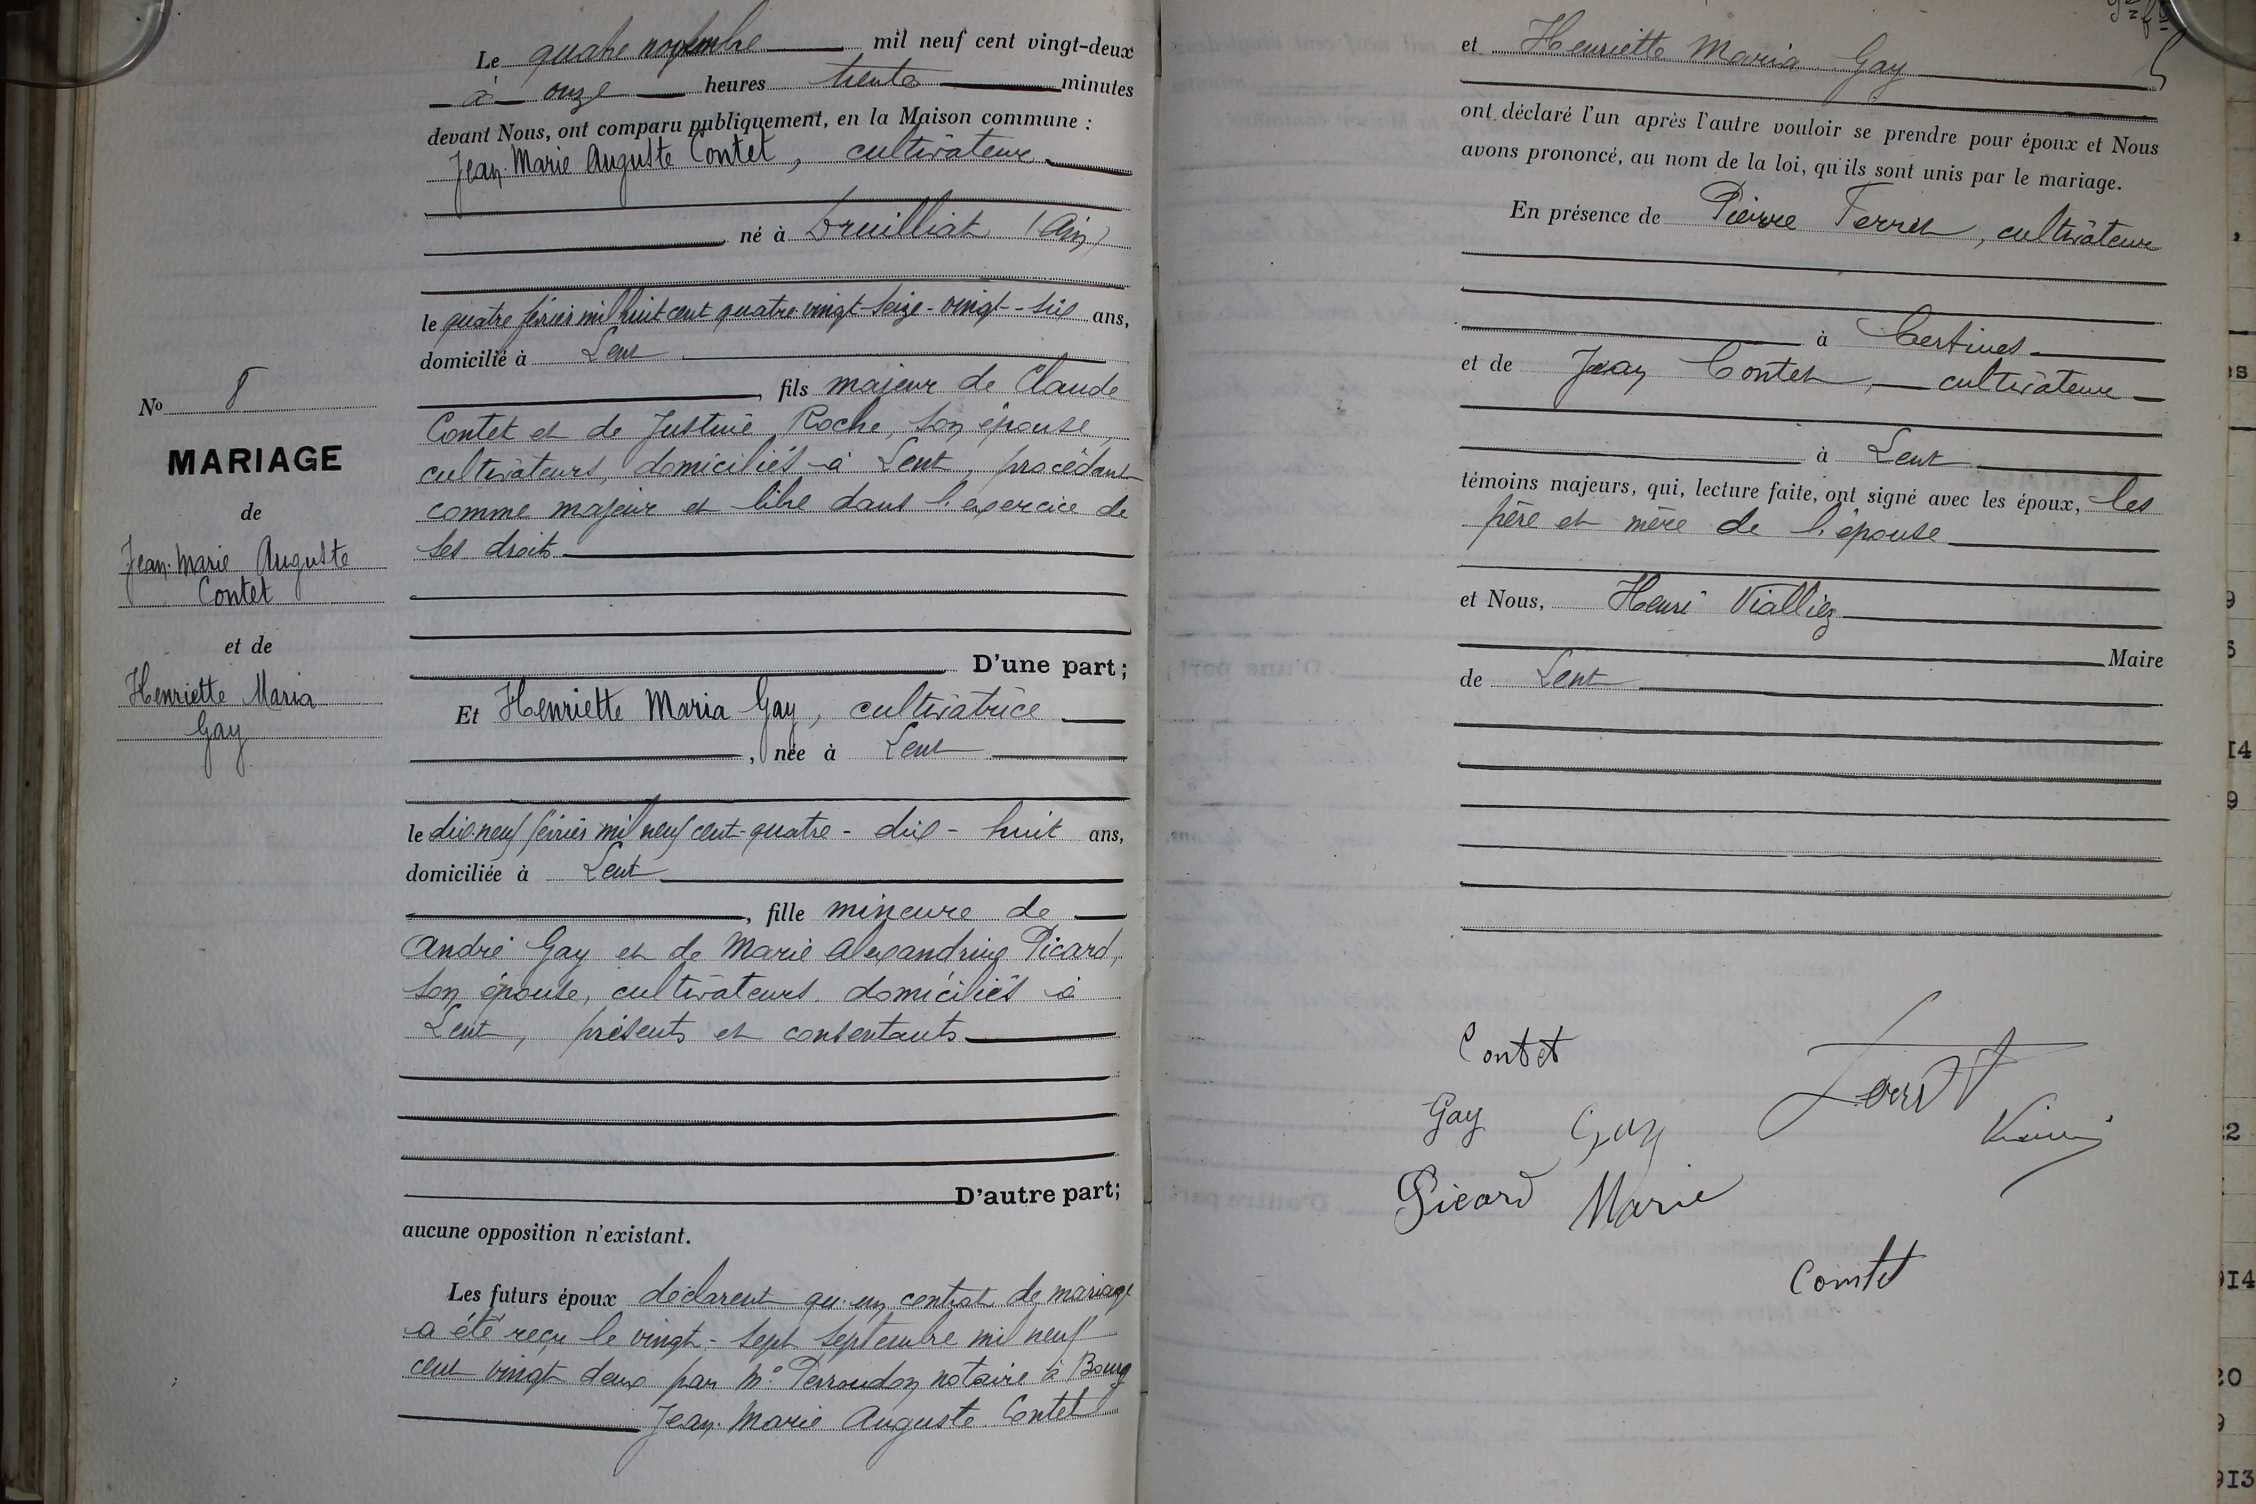 Le quatre novembre mil neuf cent vingt-deux
à onze heures trente minutes
devant Nous, ont comparu publiquement, en la Maison commune :
Jean Marie Auguste Contet, cultivateur
né à Druilliat (Ain)
le quatre février mil huit cent quatre vingt-seize - vingt-six ans,
domicilié à Lent
, fils majeur de Claude
Contet et de Justine Roche, son épouse,
cultivateurs, domiciliés à Lent, procédant
comme majeur et libre dans l'exercice de
ses droits
D'une part;
No 8
MARIAGE
de
Jean-Marie Auguste
Contet
et de
Henriette Maria
Gay
Et Henriette Maria Gay, cultivatrice
, née à Lent
le dix-neuf février mil neuf cent-quatre - dix-huit ans,
domiciliée à Lent
, fille mineure de
André Gay et de Marie Alexandrine Picard,
son épouse, cultivateurs domiciliés à
Lent, présents et consentants
D'autre part;
aucune opposition n'existant.
Les futurs époux déclarent qu'un contrat de mariage
a été reçu le vingt-sept septembre mil neuf
cent vingt deux par Me Perroudon notaire à Bourg
Jean-Marie Auguste Contet
et Henriette Maria Gay
ont déclaré l'un après l'autre vouloir se prendre pour époux et Nous
avons prononcé, au nom de la loi, qu'ils sont unis par le mariage.
En présence de Pierre Ferret, cultivateur
à Certines
et de Jean Contet, cultivateur
à Lent
témoins majeurs, qui, lecture faite, ont signé avec les époux, les
père et mère de l'épouse
et Nous, Henri Vialliez
Maire
de Lent
Contet
Ferret
Gay Gay
Picard Marie
Contet